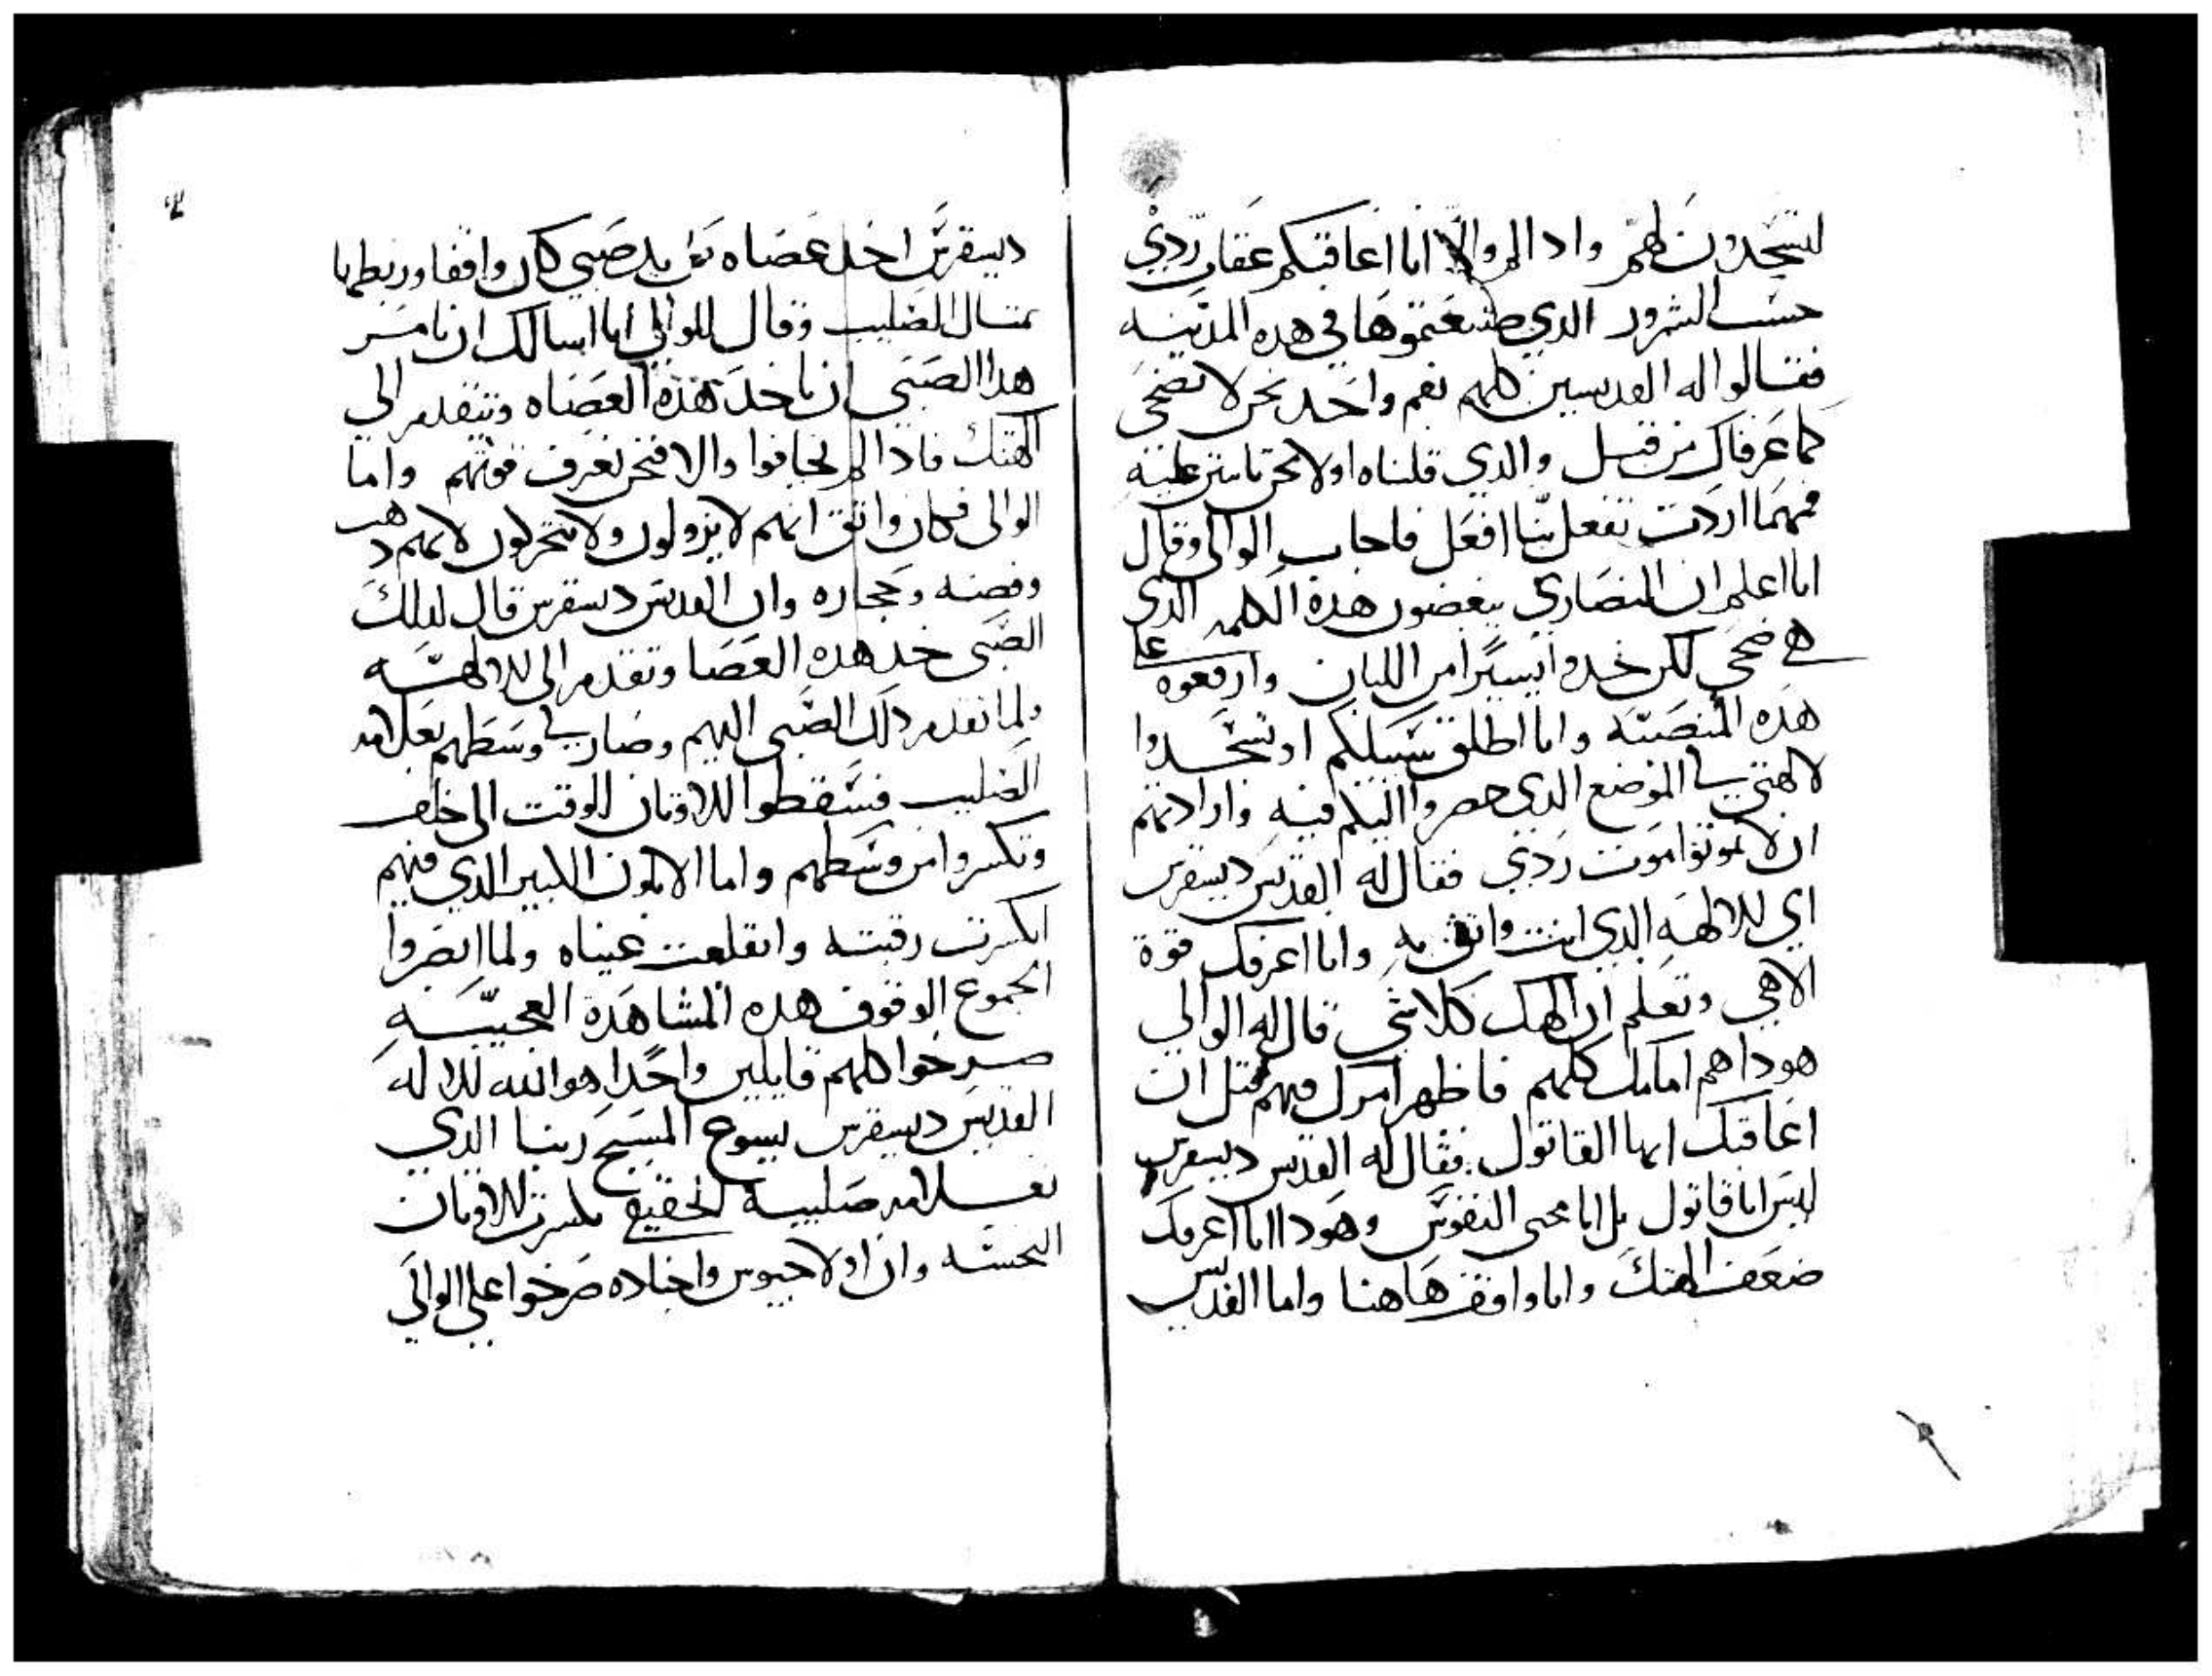 لتسجدون لهم واد الم والا انا اعاقبكم عقاب ردي
حسب الشرور الدي صنعتموها في هده المدينه
فقالوا له القديسين كلهم نعم واحد نحن لا نضحي
كما عرفاك من قبل والدي قلناه اولا نحن تابتين عليه
فمهما اردت تفعل بنا افعل فاجاب الوالي وقال
انا اعلم ان النصاري يبغضون هده الكلمه الدي
هي ضحي لكن خدوا يسيرا من اللبان وارفعوه علي
هده المنصبه وانا اطلق سبيلكم او تسجدوا
لالهتي في الموضع الدي حصروا اليكم فيه وارادتم
ان لا تموتوا موت ردي فقال له القديس ديسقرس
اي للالهه الدي انت واثق به وانا اعرفك قوة
الاهي وتعلم ان الهك كلاشي قال له الوالي
هودا هم امامك كلهم فاظهر امرك فيهم قبل ان
اعاقبك ايها القاتول فقال له القديس ديسقرس
ليس انا قاتول بل انا محيي النفوس وهودا انا اعرفك
ضعف الهتك وانا واقف هاهنا واما القديس
ديسقرس اخد عصاه من يد صبي كان واقفا وربطها
بمتال الصليب وقال للوالي انا اسالك ان تامر
هدا الصبي ان ياخد هده العصاه ويتقدم الي
الهتك فادا لم يخافوا والا فنحن نعرف قوتهم واما
الوالي فكان واثق انهم لا يزولون ولا يتحركون لانهم دهب
وفضه وحجاره وان القديس ديسقرس قال لدلك
الصبي خد هده العصا وتقدم الي للالهه
ولما تقدم دلك الصبي اليهم وصار في وسطهم بعلامه
الصليب فسقطوا للاوتان للوقت الي خلف
وتكسروا من وسطهم واما الاتون الكبير الدي فيهم
انكسرت رقبته وانقلعت عيناه ولما ابصروا
الجموع الوقوف هده المشاهدة العجيبه
صرخوا كلهم قايلين واحدا هو الله للاله
القديس ديسقرس يسوع المسيح ربنا الدي
بعلامه صليبه الحقيقي تكسرت للاوتان
النجسه وان اولاجيوس واجناده صرخوا علي الوالي